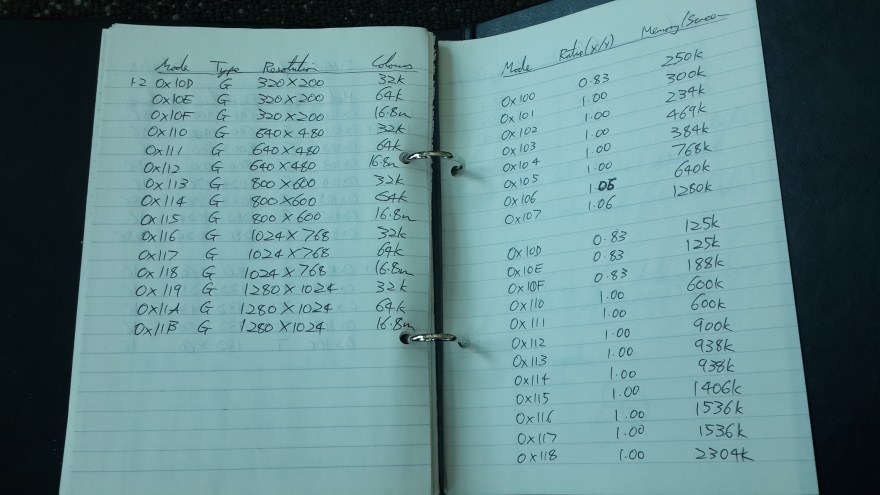 Mode Type Resolution Colours
1.2 0x10D G 320x200 32k
0x10E G 320x200 64k
0x10F G 320x200 16.8m
0x110 G 640x480 32k
0x111 G 640x480 64k
0x112 G 640x480 16.8m
0x113 G 800x600 32k
0x114 G 800x600 64k
0x115 G 800x600 16.8m
0x116 G 1024x768 32k
0x117 G 1024x768 64k
0x118 G 1024x768 16.8m
0x119 G 1280x1024 32k
0x11A G 1280x1024 64k
0x11B G 1280x1024 16.8m
Mode Ratio(x/y) Memory/Screen
0x100 0.83 250k
0x101 1.00 300k
0x102 1.00 234k
0x103 1.00 469k
0x104 1.00 384k
0x105 1.00 768k
0x106 1.05 640k
0x107 1.06 1280k
0x10D 0.83 125k
0x10E 0.83 125k
0x10F 0.83 188k
0x110 1.00 600k
0x111 1.00 600k
0x112 1.00 900k
0x113 1.00 938k
0x114 1.00 938k
0x115 1.00 1406k
0x116 1.00 1536k
0x117 1.00 1536k
0x118 1.00 2304k